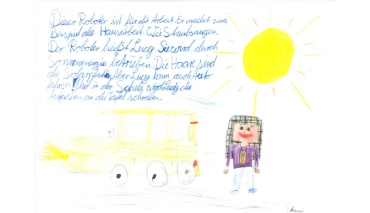 Dieser Roboter ist für die Arbeit. Er macht zum
Beispiel die Hausarbeit wie Staubsaugen.
Der Roboter heißt Lucy. Sie wird durch
Sonnenenergie betrieben. Die Haare sind
die Solarplatte. Aber Lucy kann auch Auto
fahren in der Schule
an die Tafel schreiben.